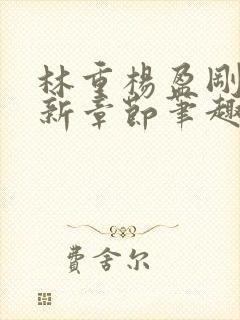 林重楊盈剛
新章節筆趣
費舍尔